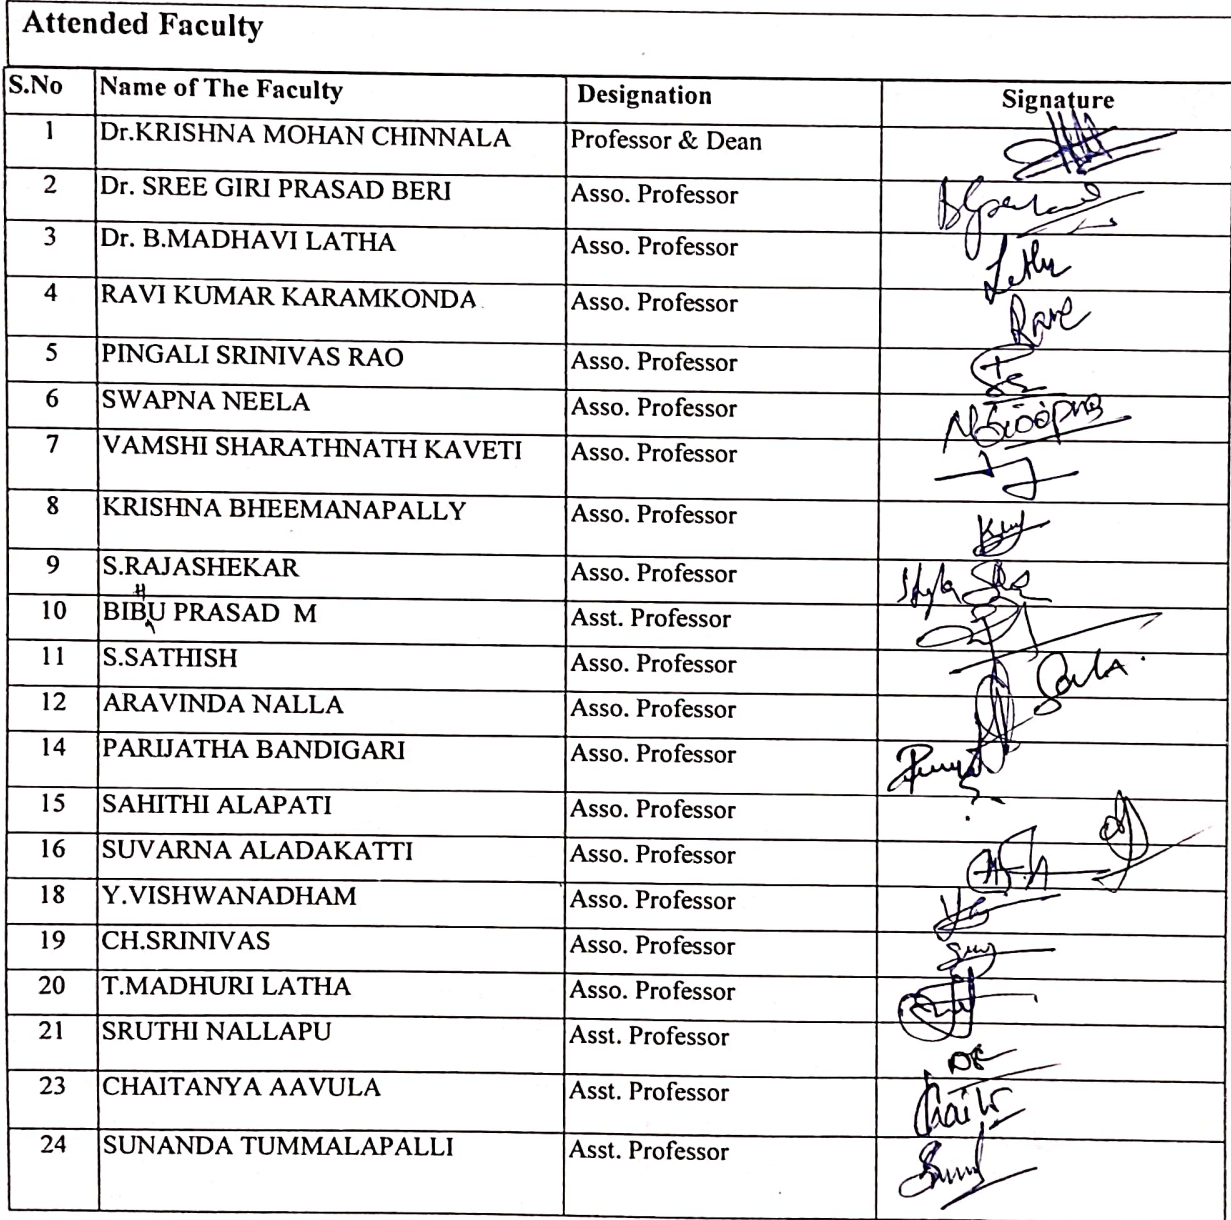 Attended Faculty
S.No Name of The Faculty Designation Signature
1 Dr.KRISHNA MOHAN CHINNALA Professor & Dean
2 Dr. SREE GIRI PRASAD BERI Asso. Professor
3 Dr. B.MADHAVI LATHA Asso. Professor
4 RAVI KUMAR KARAMKONDA Asso. Professor
5 PINGALI SRINIVAS RAO Asso. Professor
6 SWAPNA NEELA Asso. Professor
7 VAMSHI SHARATHNATH KAVETI Asso. Professor
8 KRISHNA BHEEMANAPALLY Asso. Professor
9 S.RAJASHEKAR Asso. Professor
10 BIBHU PRASAD M Asst. Professor
11 S.SATHISH Asso. Professor
12 ARAVINDA NALLA Asso. Professor
14 PARIJATHA BANDIGARI Asso. Professor
15 SAHITHI ALAPATI Asso. Professor
16 SUVARNA ALADAKATTI Asso. Professor
18 Y.VISHWANADHAM Asso. Professor
19 CH.SRINIVAS Asso. Professor
20 T.MADHURI LATHA Asso. Professor
21 SRUTHI NALLAPU Asst. Professor
23 CHAITANYA AAVULA Asst. Professor
24 SUNANDA TUMMALAPALLI Asst. Professor